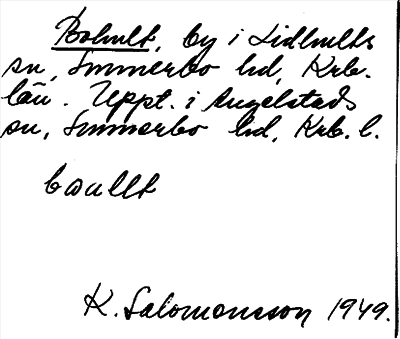 Bohult, by i Lidhults
sn, Sunnerbo hd, Krb.
län. Uppt. i Angelstads
sn, Sunnerbo hd, Krb. l.
K. Salomonsson 1949.